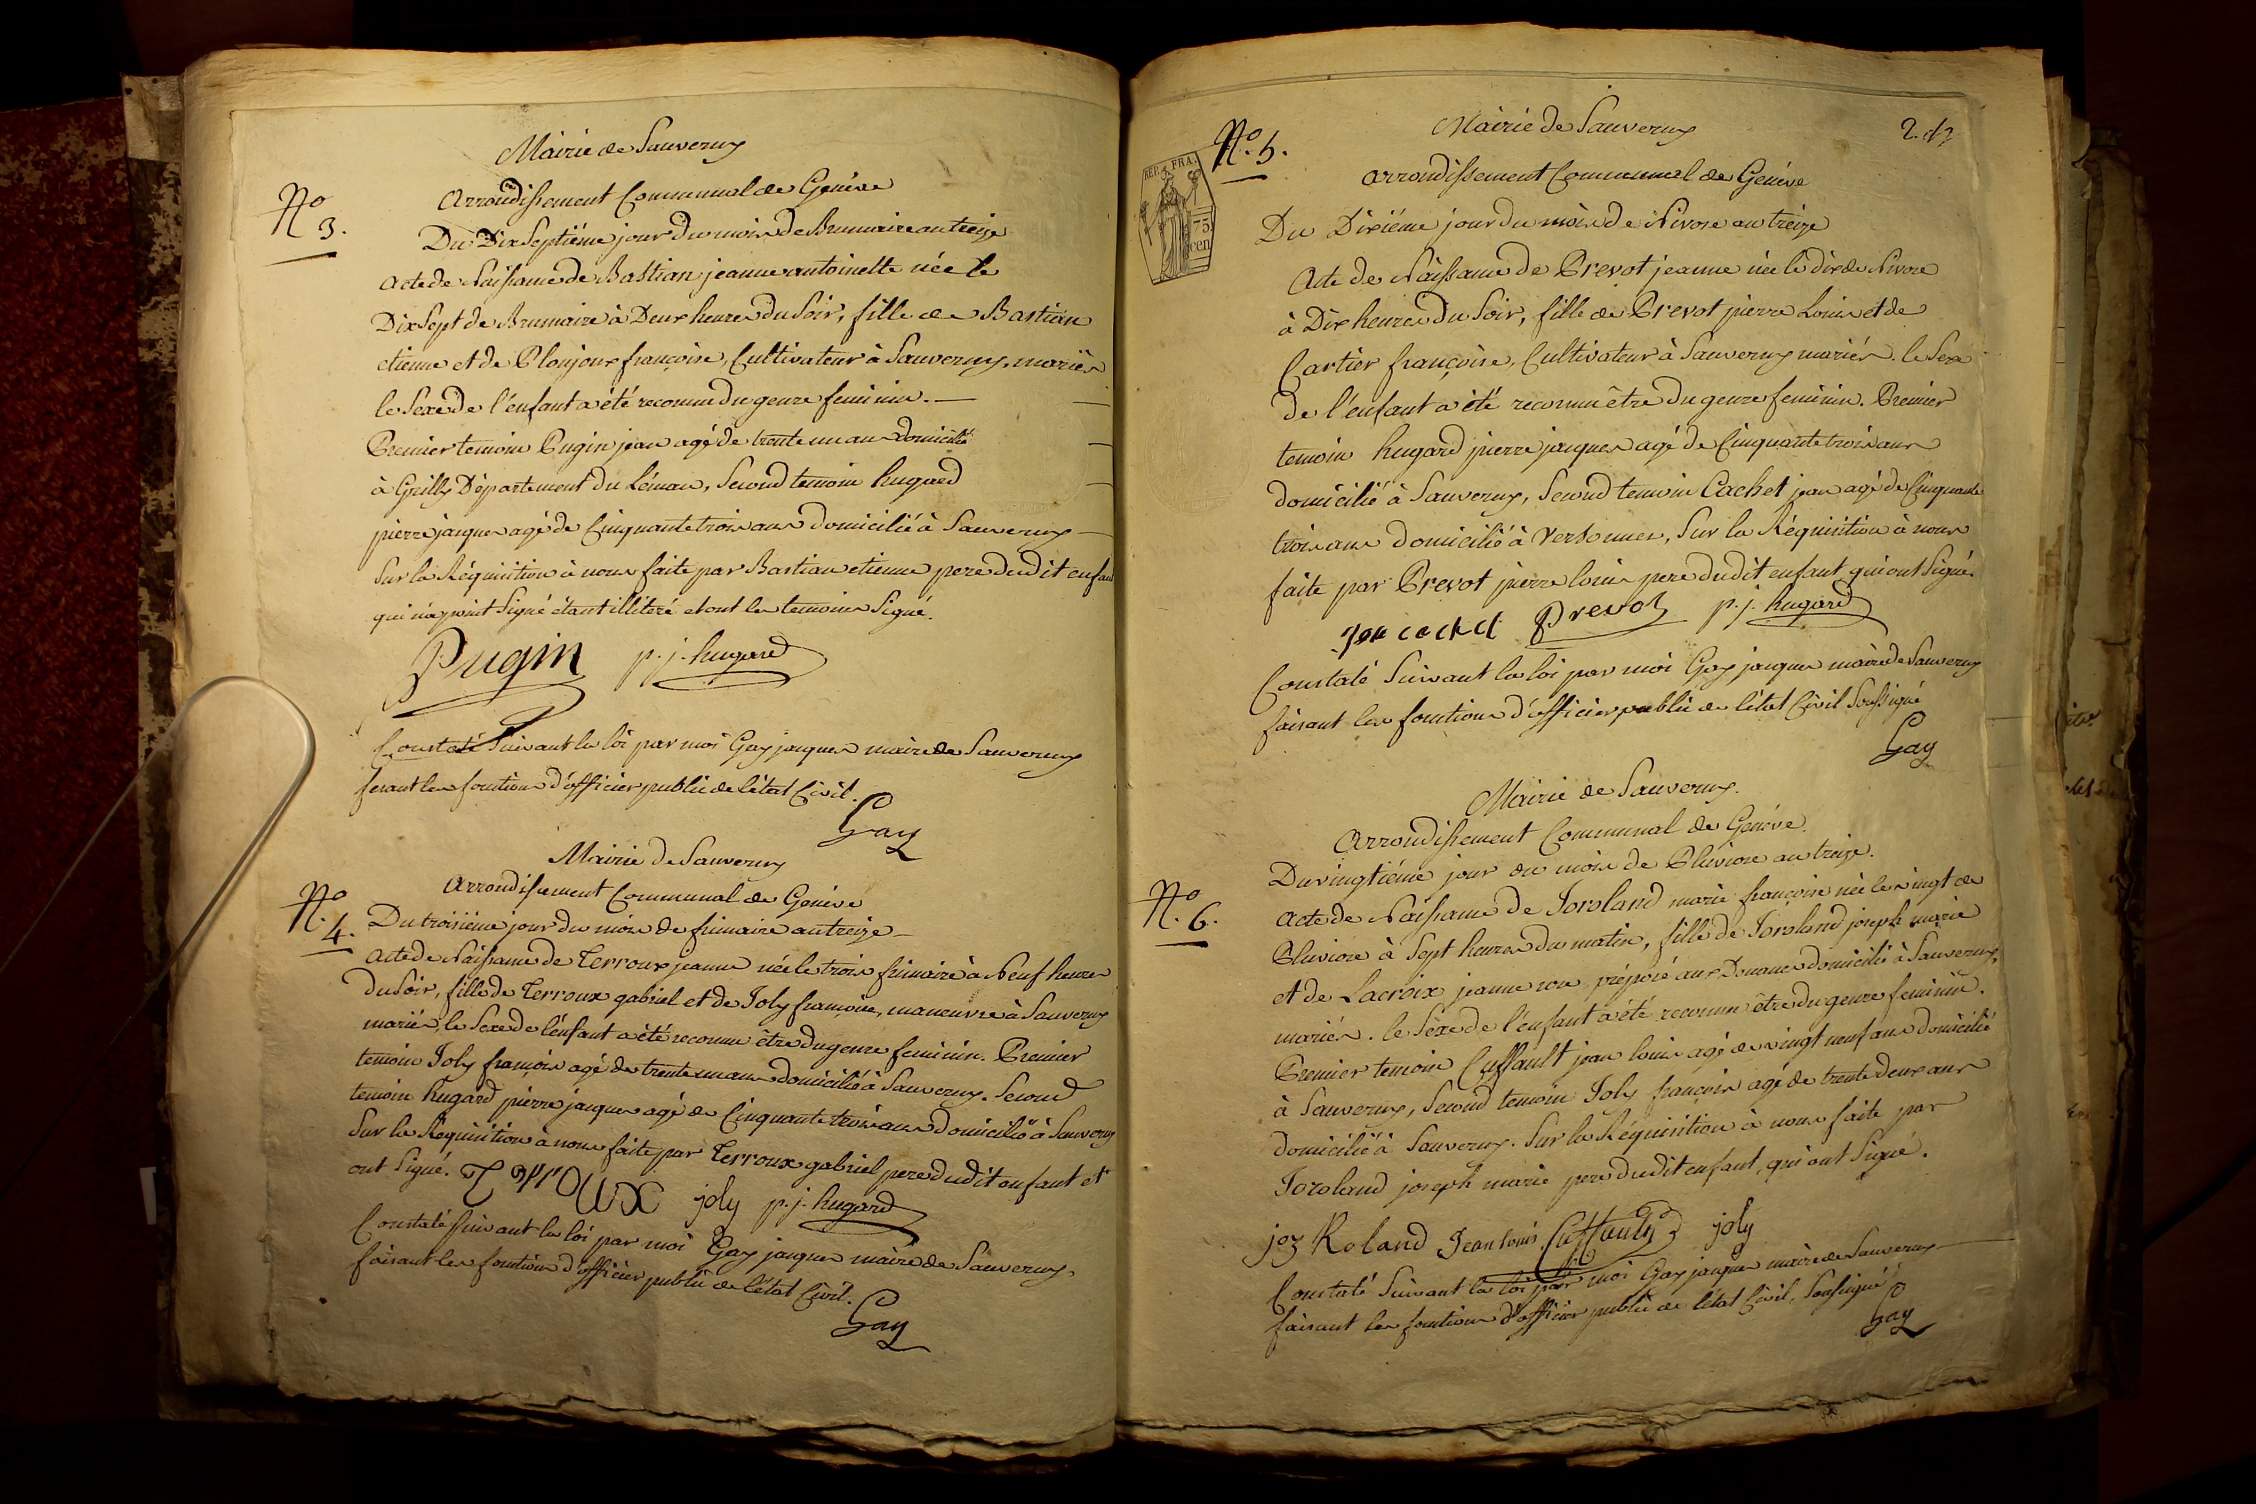 Mairie de Sauverny
Arrondissement Communal de Genève
N.º 3.
Du Dix Septiéme jour du mois de Brumaire an treize
acte de Naissance de Bastian jeanne antoinette née le
Dix Sept de Brumaire à Deux heures du Soir, fille de Bastian
etienne et de Plonjoux françoise, Cultivateur à Sauverny, mariés
le Sexe de l'enfant a été reconnu du genre feminin.
Premier temoin Pugin jean agé de trente un ans domicilié
à Grilly Département du Léman, Second temoin hugard
pierre jaques agé de Cinquante trois ans domicilié à Sauverny
Sur la Réquisition à nous faite par Bastian etienne pere dudit enfant
qui n'a point Signé étant illiteré et ont les temoins Signé.
Pugin p. j. hugard
Constaté Suivant la loi par moi Gay jaques maire de Sauverny
fesant les fonctions d'officier public de l'état Civil.
Gay
Mairie de Sauverny
Arrondissement Communal de Genève
N.º 4.
Du troisiéme jour du mois de frimaire an treize
acte de Naissance de Terroux jeanne née le trois frimaire à Neuf heures
du Soir, fille de Terroux gabriel et de Joly françoise, maneuvre à Sauverny
mariés, le Sexe de l'enfant a été reconnu être du genre feminin. Premier
temoin Joly françois agé de trente un ans domicilié à Sauverny. Second
temoin hugard pierre jaques agé de Cinquante trois ans domicilié à Sauverny
Sur la Requisition à nous faite par Terroux gabriel pere dudit enfant et
ont Signé. Terroux joly p. j. hugard
Constaté suivant la loi par moi Gay jaques maire de Sauverny,
faisant les fonctions d'officier public de l'état Civil.
Gay
Mairie de Sauverny
N.º 5.
REP. FRA.
75
cen
Arrondissement Communal de Genève
Du Dixiéme jour du mois de Nivose an treize
Acte de Naissance de Prevot jeanne née le dix de Nivose
à Dix heures du Soir, fille de Prevot pierre Louis et de
Cartier françoise, Cultivateur à Sauverny mariés. le Sexe
de l'enfant a été reconnu être du genre feminin. Premier
temoin hugard pierre jaques agé de Cinquante trois ans
domicilié à Sauverny, Second temoin Cachet jean agé de Cinquante
trois ans domicilié à Versonnex, Sur la Réquisition à nous
faite par Prevot pierre louis pere dudit enfant qui ont Signé.
cachet Prevot p. j. hugard
Constaté Suivant la loi par moi Gay jaques maire de Sauverny
faisant les fonctions d'officier public de l'état Civil Soussigné
Gay
Mairie de Sauverny.
Arrondissement Communal de Genève.
N.º 6.
Du vingtiéme jour du mois de Pluviose an treize.
acte de Naissance de Joroland marie françoise née le vingt de
Pluviose à Sept heures du matin, fille de Joroland joseph marie
et de Lacroix jeanne préposé aux Douanes domicilié à Sauverny,
mariés. le Sexe de l'enfant a été reconnu être du genre feminin.
Premier temoin Cuffault jean louis agé de vingt neuf ans domicilié
à Sauverny, Second temoin Joly françois agé de trente deux ans
domicilié à Sauverny. Sur la Réquisition à nous faite par
Joroland joseph marie pere dudit enfant, qui ont Signé.
joz Roland Jean louis Cuffault joly
Constaté Suivant la loi par moi Gay jaques maire de Sauverny
faisant les fonctions d'officier public de l'état Civil, Soussigné
Gay